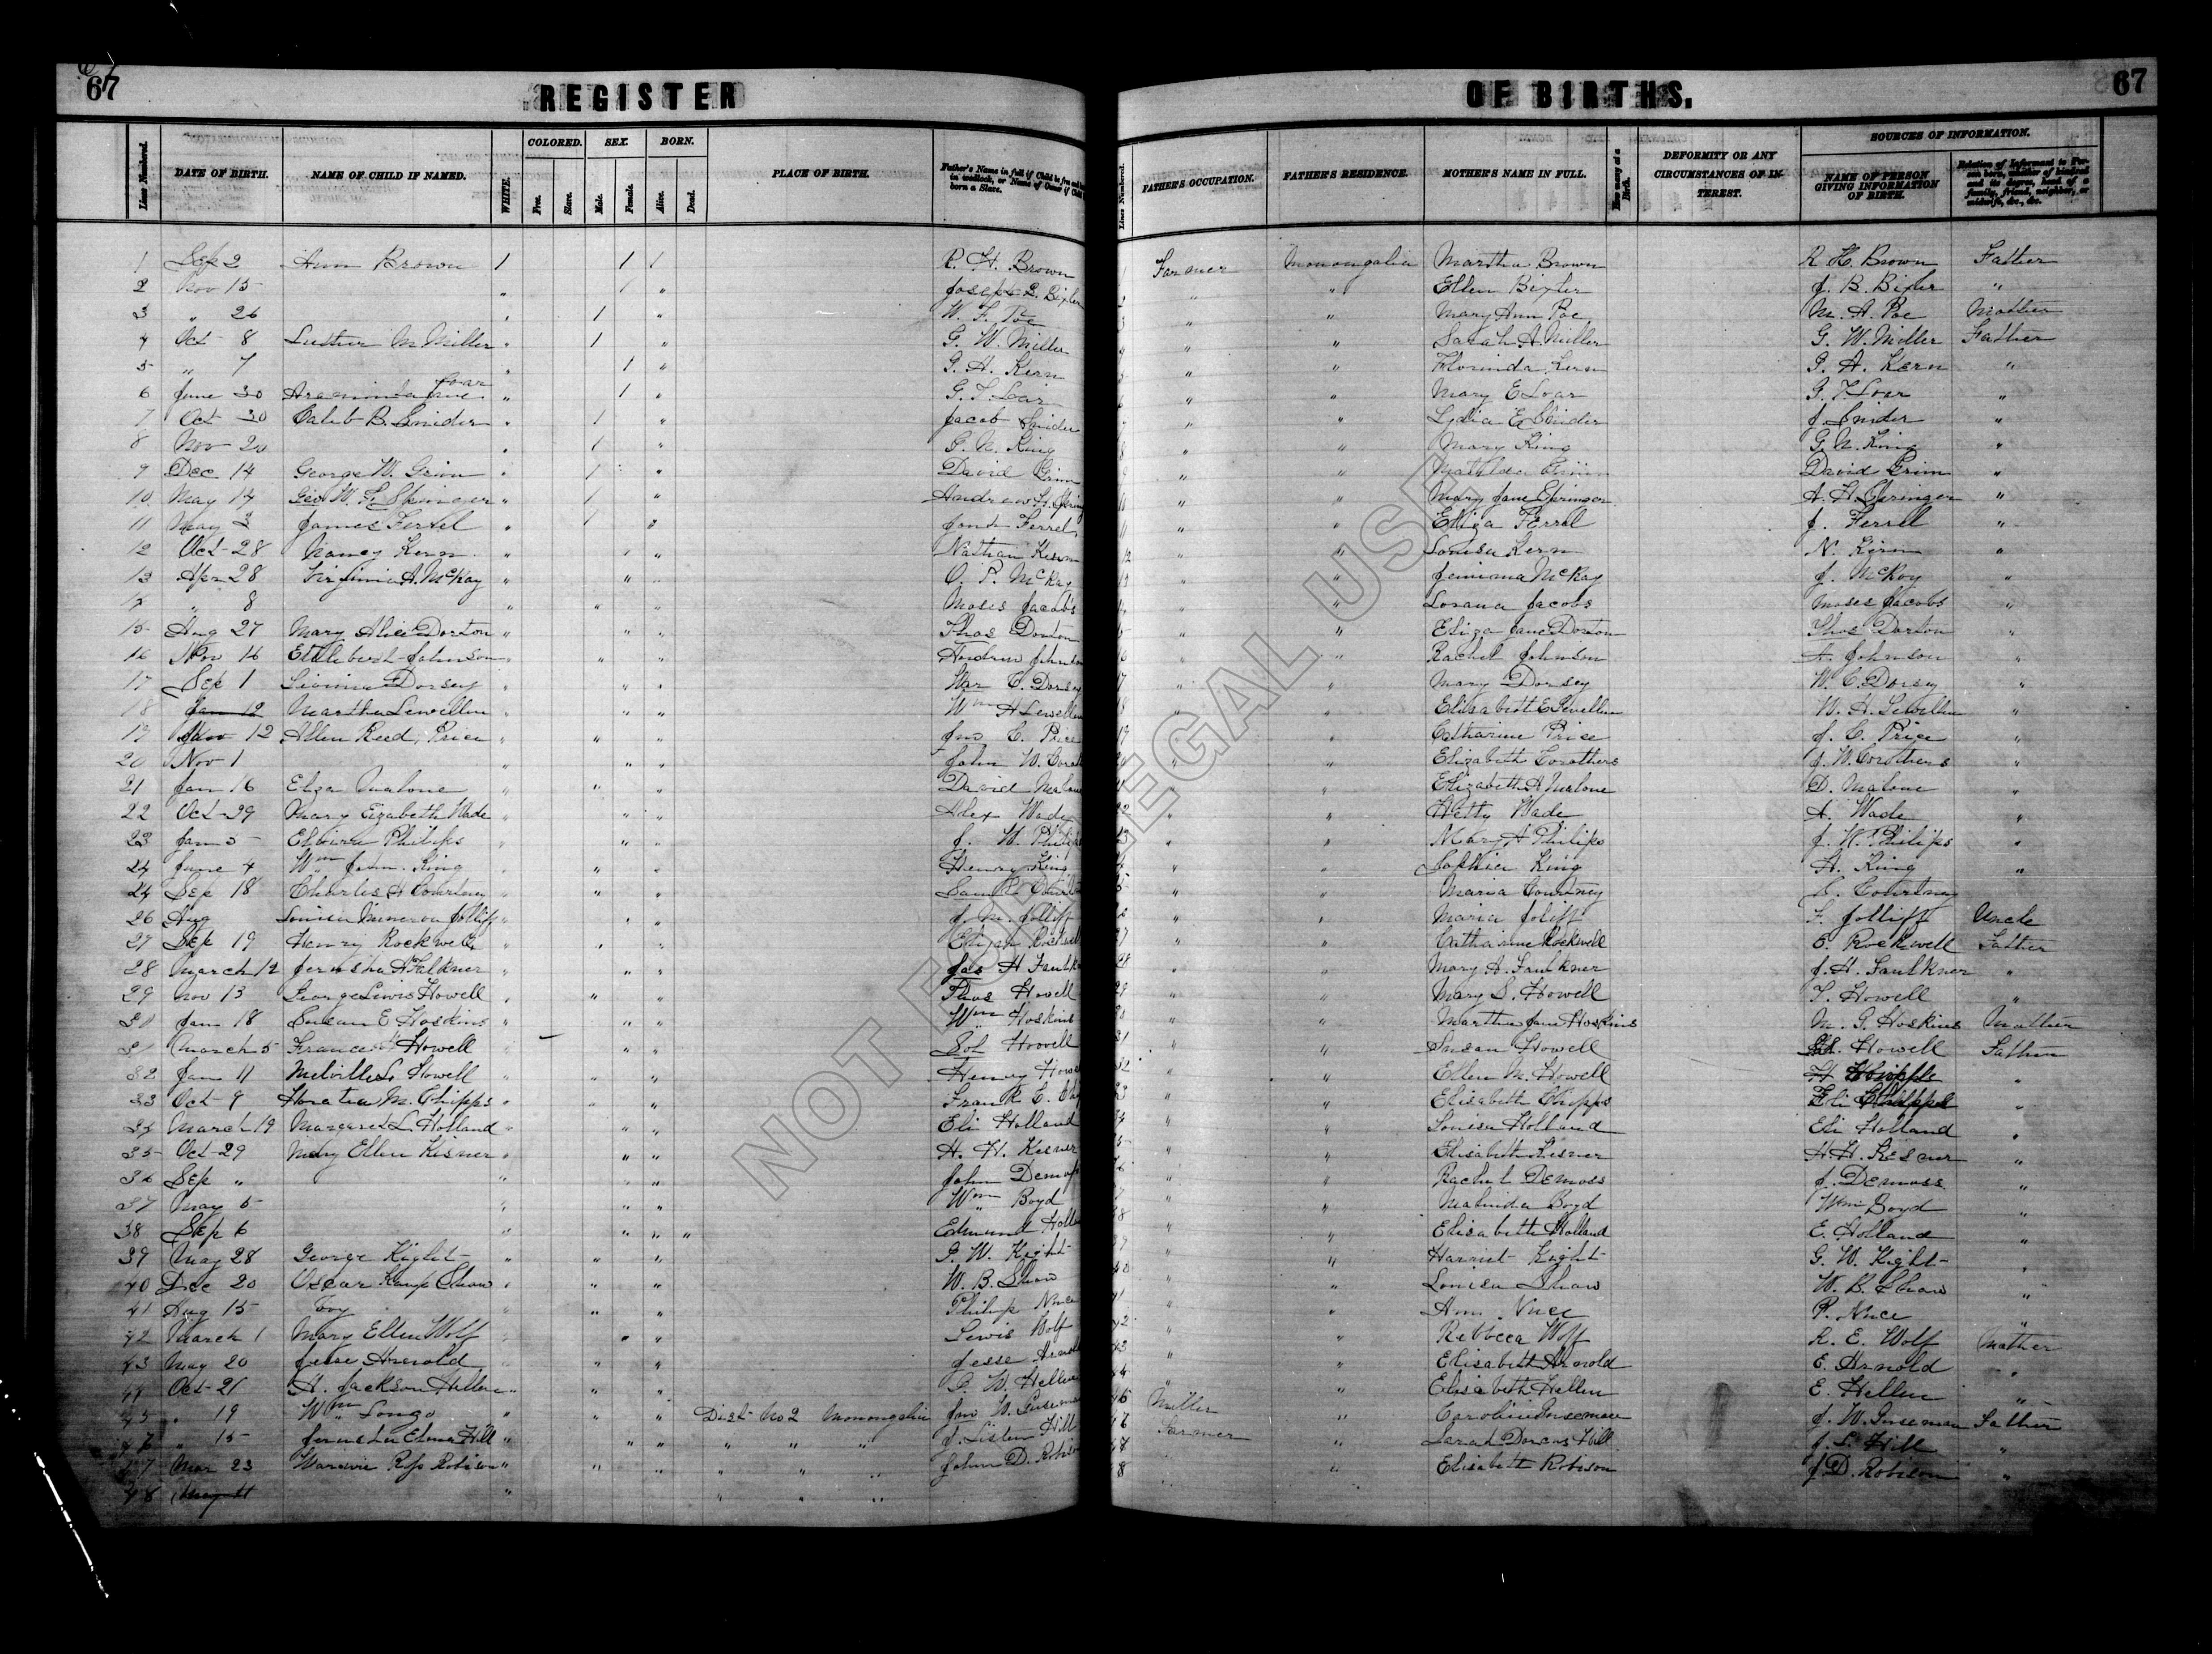 67
REGISTER OF BIRTHS.
67
Lines Numbered. DATE OF BIRTH. NAME OF CHILD IF NAMED. WHITE. COLORED. Free. Slave. SEX. Male. Female. BORN. Alive. Dead. PLACE OF BIRTH. Father's Name in full if Child be free and born in wedlock, or Name of Owner if Child born a Slave. Lines Numbered. FATHER'S OCCUPATION. FATHER'S RESIDENCE. MOTHER'S NAME IN FULL. How many at a Birth. DEFORMITY OR ANY CIRCUMSTANCES OF INTEREST. SOURCES OF INFORMATION. NAME OF PERSON GIVING INFORMATION OF BIRTH. Relation of Informant to Person born,
1 Sep 2 Ann Brown 1 1 1 R. H. Brown Farmer Monongalia Martha Brown R H. Brown Father
2 Nov 15 " " Joseph B. Bixler " " Ellen Bixler J. B. Bixler "
3 " 26 " 1 " W. F. Poe " " Mary Ann Poe M. A. Poe Mother
4 Oct 8 Luther M Miller " 1 " G. W. Miller " " Sarah A. Miller G. W. Miller Father
5 " 7 " 1 " G. H. Kern " " Florinda Kern G. H. Kern "
6 June 30 Araminta Loar " 1 " G. T. Loar " " Mary E Loar G. T Loar "
7 Oct 30 Caleb B. Snider " 1 " Jacob Snider " " Lydia E Snider J. Snider "
8 Nov 20 " 1 " G. N. King " " Mary King G. N. King "
9 Dec 14 George W. Grim " 1 " David Grim " " Matilda Grim David Grim "
10 May 14 Geo W. F. Springer " 1 " Andrew H. Spring " " Mary Jane Springer A. H. Springer "
11 May 3 James Ferrel " 1 " Ferrel " " Eliza Ferrel J. Ferrell "
12 Oct 28 Nancy Kern " " " Nathan Kern " " Louisa Kern N. Kern "
13 Apr 28 Virginia A. McKay " " " O. P. McKay " " Jemima McKay J. McKoy "
14 " 8 " " " Moses Jacobs " " Lorana Jacobs Moses Jacobs "
15 Aug 27 Mary Alice Dorton " " " Thos Dorton " " Eliza Jane Dorton Thos Dorton "
16 Nov 16 Johnson " " " Andrew Johnson " " Rachel Johnson A. Johnson "
17 Sep 1 Dorsey " " " C. Dorsey " " Mary Dorsey W. C. Dorsey "
18 Jan 12 Martha Lewellen " " " Wm H Lewellen " " Elizabeth E Lewellen W. H. Lewellen "
19 Nov 12 Allen Reed Price " " " Jno C. Price " " Catharine Price J. C. Price "
20 Nov 1 " " " John W. Coroth " " Elizabeth Corothers J. W. Corothers "
21 Jan 16 Eliza Malone " " " David Malone " " Elizabeth A Malone D. Malone "
22 Oct 29 Mary Elizabeth Wade " " " Alex Wade " " Hetty Wade A. Wade "
23 Jan 5 Elvira Philips " " " J. W. Philips " " Mary A Philips J. W. Philips "
24 June 4 Wm John King " " " Henry King " " Sophia King H. King "
24 Sep 18 Charles A Courtney " " " Saml Court " " Maria Courtney S. Courtney "
26 Aug Louisa Minerva Jolliff " " " J. M. Jolliff " " Maria Joliff F. Jolliff Uncle
27 Sep 19 Henry Rockwell " " " Elijah Rockwell " " Catharine Rockwell E. Rockwell Father
28 March 12 Jerusha A Falkner " " " Jas H Faulk " " Mary A. Faulkner J. H. Faulkner "
29 Nov 13 George Lewis Howell " " " Thos Howell " " Mary S. Howell T. Howell "
30 Jan 18 Susan E Hoskins " " " Wm Hoskins " " Martha Jane Hoskins M. J. Hoskins Mother
31 March 5 Frances Howell " " " Sol Howell " " Susan Howell Sol. Howell Father
32 Jan 11 Melville L. Howell " " " Henry Howe " " Ellen M. Howell "
33 Oct 9 Horatia M. Chipps " " " Frank C. Chi " " Elisabeth Chipps Chipps "
34 March 19 Margaret L. Holland " " " Eli Holland " " Louisa Holland Eli Holland "
35 Oct 29 Mary Ellen Kisner " " " H. H. Kesner " " Elisabeth Kisner H. H. Kesner "
36 Sep " " " " John Demoss " " Rachel Demoss J. Demoss "
37 May 5 " " " Wm Boyd " " Malinda Boyd Wm Boyd "
38 Sep 6 " " " " Edmund Holla " " Elisabeth Holland E. Holland "
39 May 28 George Kight " " " G. W. Kight " " Harriet Kight G. W. Kight "
40 Dec 20 Oscar Kamp Shaw " " " W. B. Shaw " " Louisa Shaw W. B. Shaw "
41 Aug 15 " " " Philip Nuce " " Ann Nuce P. Nuce "
42 March 1 Mary Ellen Wolf " " " Lewis Wolf " " Rebbeca Wolf R. E. Wolf Mother
43 May 20 Jesse Arnold " " " Jesse Arnold " " Elisabeth Arnold E. Arnold "
44 Oct 21 A. Jackson Hellen " " " W. Hellen " " Elisabeth Hellen E. Hellen "
45 " 19 Wm Longo " " " Dist No 2 Monongalia Jno W. Miller " Caroline J. W. Father
46 " 15 Elma Hill " " " " " " J. Liston Hill Farmer " Sarah Dorcas Hill J. L. Hill "
47 Mar 23 Ross Robison " " " " " " John D. Robison " " Elisabeth Robison J. D. Robison "
48 " " " "
NOT FOR LEGAL USE